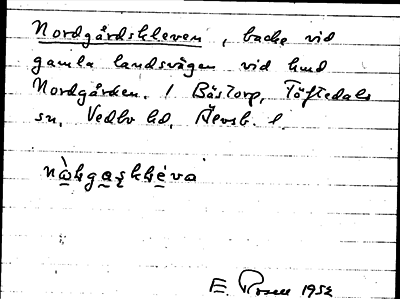 Nordgårdskleven, backe vid
gamla landsvägen vid hmd
Nordgården. / Bästorp, Töftedals
sn, Vedbo hd, Älvsb. l.
E. Rosell 1952